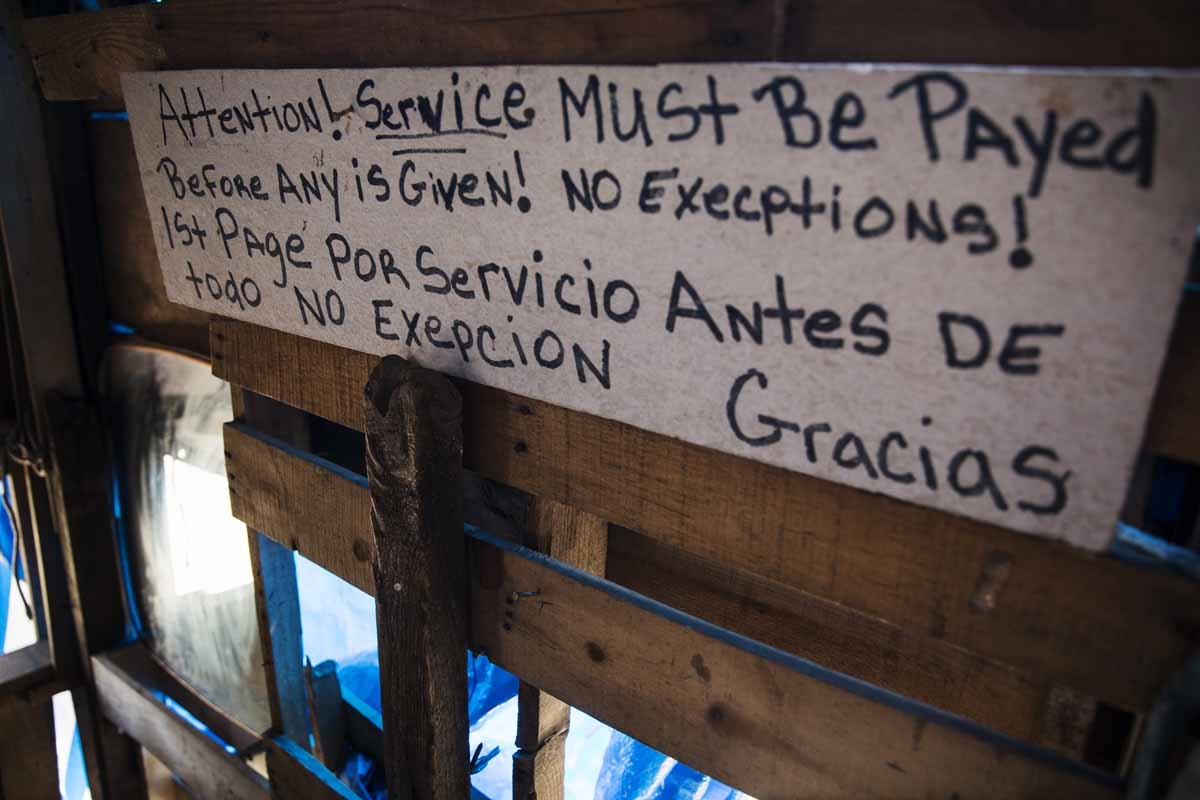 Attention! Service Must Be Payed
Before Any is Given! No Execptions!
1st Pagé por Servicio Antes DE
todo NO Exepcion
Gracias